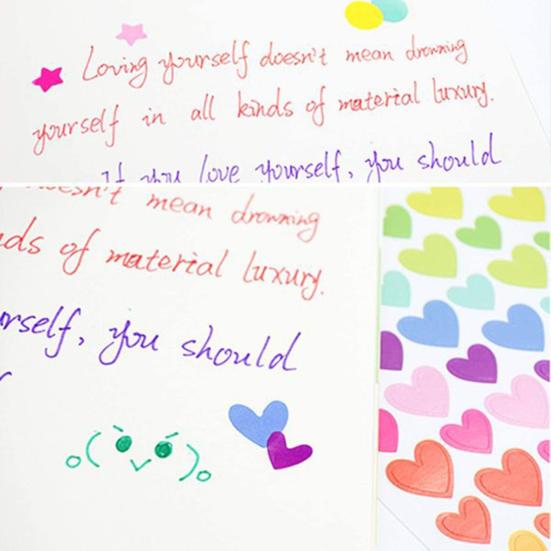 Loving yourself doesn't mean drowning
yourself in all kinds of material luxury.
If you love yourself, you should
doesn't mean drowning
of material luxury.
, you should